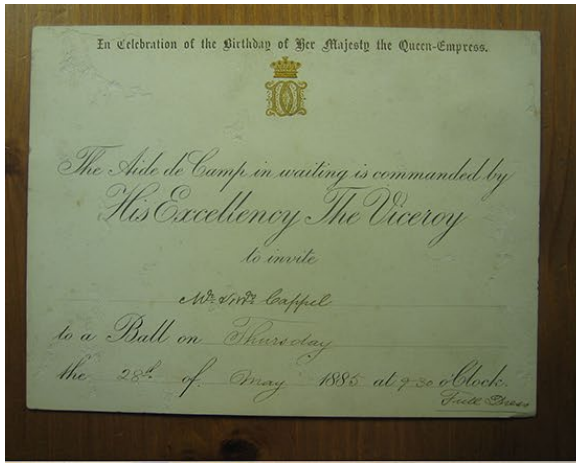 In Celebration of the Birthday of Her Majesty the Queen-Empress.
The Aide de Camp in waiting is commanded by
His Excellency The Viceroy
to invite
Mr. & Mrs. Cappel
to a Ball on Thursday
the 28th of May 1885 at 9-30 o'Clock.
Full Dress